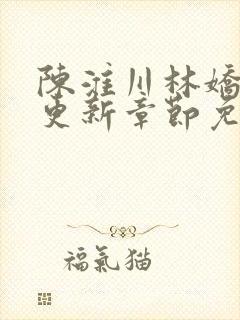 陳淮川林嬌
更新章節免
福氣猫